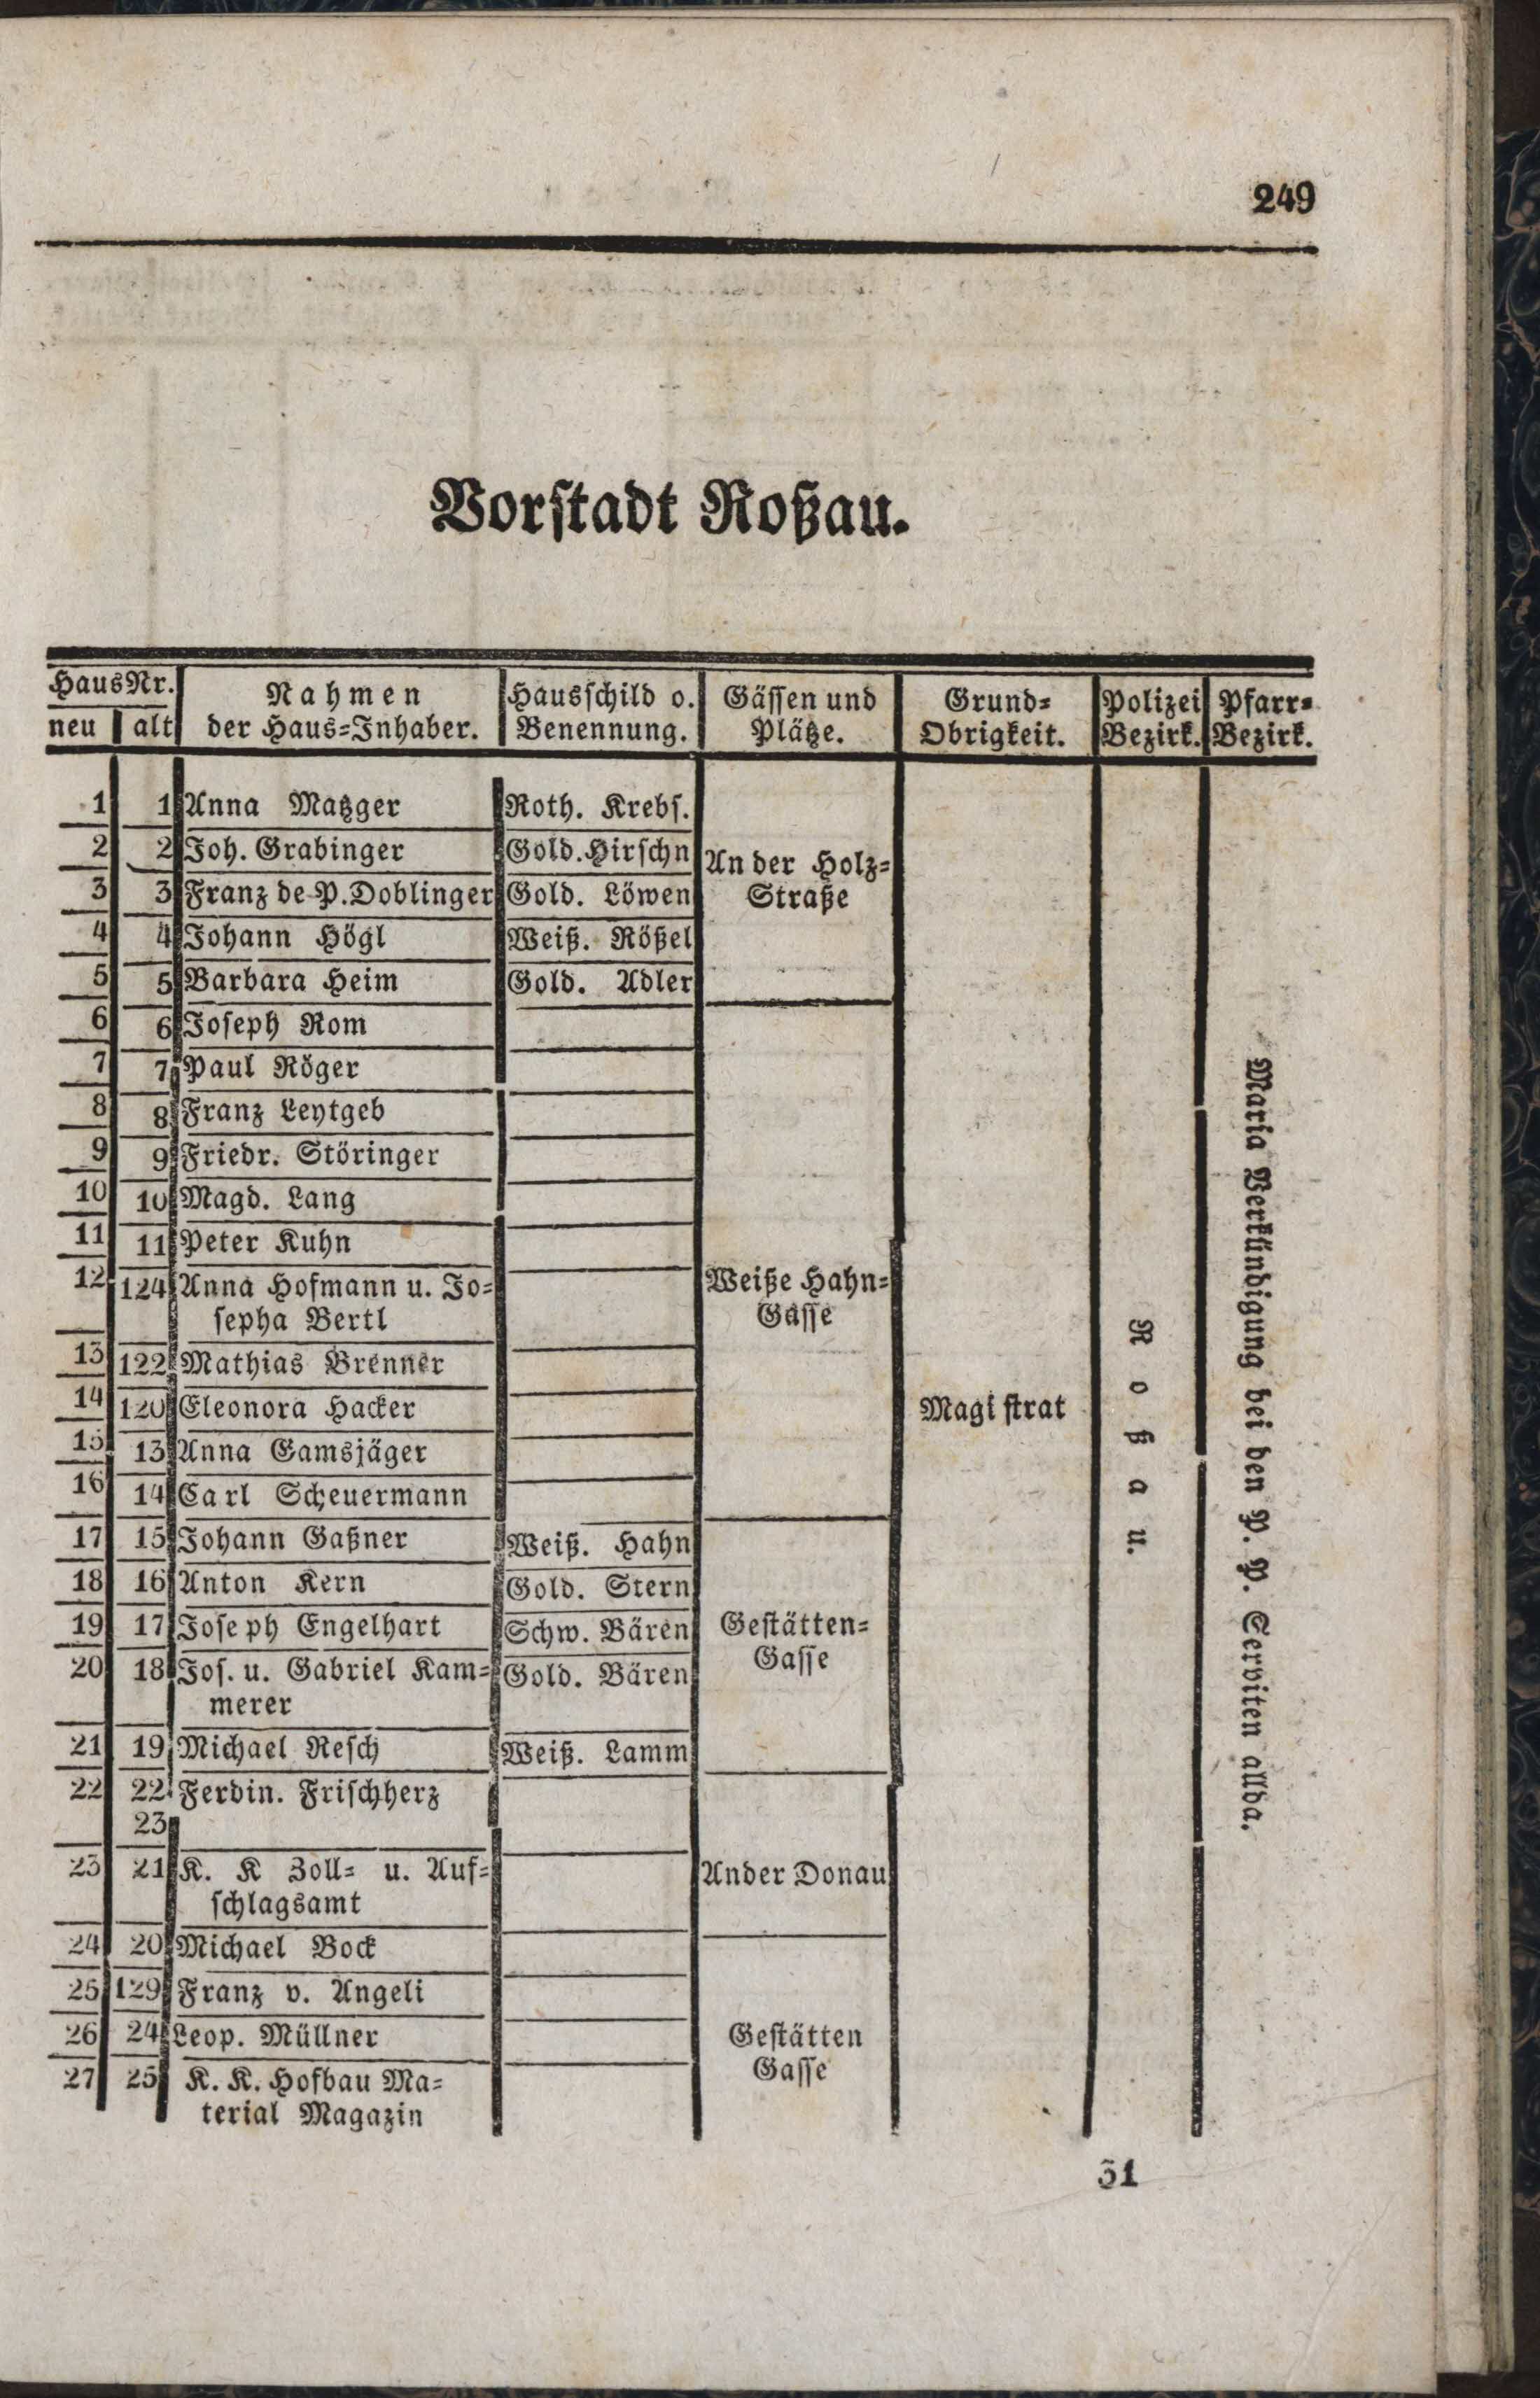 249
Vorstadt Roßau.
HausNr. Nahmen Hausschild o. Gässen und Grund= Polizei Pfarr=
neu alt der Haus=Inhaber. Benennung. Plätze. Obrigkeit. Bezirk. Bezirk.
1 1 Anna Matzger Roth. Krebs.
2 2 Joh. Grabinger Gold. Hirschn An der Holz=
3 3 Franz de P. Doblinger Gold. Löwen Straße
4 4 Johann Högl Weiß. Rößel
5 5 Barbara Heim Gold. Adler
6 6 Joseph Rom
7 7 Paul Röger
8 8 Franz Leytgeb
9 9 Friedr. Störinger
10 10 Magd. Lang
11 11 Peter Kuhn
12 124 Anna Hofmann u. Jo= Weiße Hahn=
sepha Bertl Gasse
13 122 Mathias Brenner
14 120 Eleonora Hacker Magistrat
15 13 Anna Gamsjäger
16 14 Carl Scheuermann
17 15 Johann Gaßner Weiß. Hahn
18 16 Anton Kern Gold. Stern
19 17 Joseph Engelhart Schw. Bären Gestätten=
20 18 Jos. u. Gabriel Kam= Gold. Bären Gasse
merer
21 19 Michael Resch Weiß. Lamm
22 22 Ferdin. Frischherz
23
23 21 K. K Zoll= u. Auf= Ander Donau
schlagsamt
24 20 Michael Bock
25 129 Franz v. Angeli
26 24 Leop. Müllner Gestätten
27 25 K. K. Hofbau Ma= Gasse
terial Magazin
Roßau.
Maria Verkündigung bei den P. P. Serviten allda.
31